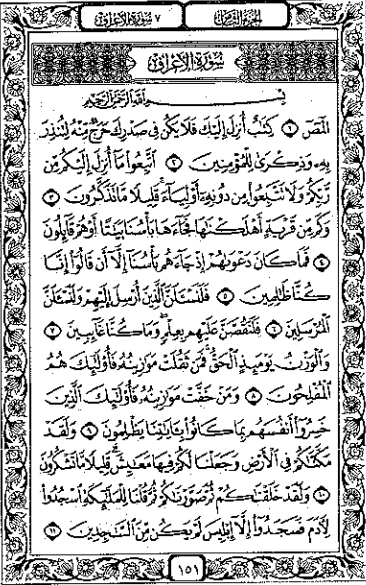 الجزء الثامن ٧ سورة الأعراف
سورة الأعراف
بسم الله الرحمن الرحيم
الٓمٓصٓ ١ كِتَٰبٌ أُنزِلَ إِلَيْكَ فَلَا يَكُن فِى صَدْرِكَ حَرَجٌ مِّنْهُ لِتُنذِرَ
بِهِۦ وَذِكْرَىٰ لِلْمُؤْمِنِينَ ٢ ٱتَّبِعُوا۟ مَآ أُنزِلَ إِلَيْكُم مِّن
رَّبِّكُمْ وَلَا تَتَّبِعُوا۟ مِن دُونِهِۦٓ أَوْلِيَآءَ قَلِيلًا مَّا تَذَكَّرُونَ ٣
وَكَم مِّن قَرْيَةٍ أَهْلَكْنَٰهَا فَجَآءَهَا بَأْسُنَا بَيَٰتًا أَوْ هُمْ قَآئِلُونَ
٤ فَمَا كَانَ دَعْوَىٰهُمْ إِذْ جَآءَهُم بَأْسُنَآ إِلَّآ أَن قَالُوٓا۟ إِنَّا
كُنَّا ظَٰلِمِينَ ٥ فَلَنَسْـَٔلَنَّ ٱلَّذِينَ أُرْسِلَ إِلَيْهِمْ وَلَنَسْـَٔلَنَّ
ٱلْمُرْسَلِينَ ٦ فَلَنَقُصَّنَّ عَلَيْهِم بِعِلْمٍ وَمَا كُنَّا غَآئِبِينَ ٧
وَٱلْوَزْنُ يَوْمَئِذٍ ٱلْحَقُّ فَمَن ثَقُلَتْ مَوَٰزِينُهُۥ فَأُو۟لَٰٓئِكَ هُمُ
ٱلْمُفْلِحُونَ ٨ وَمَنْ خَفَّتْ مَوَٰزِينُهُۥ فَأُو۟لَٰٓئِكَ ٱلَّذِينَ
خَسِرُوٓا۟ أَنفُسَهُم بِمَا كَانُوا۟ بِـَٔايَٰتِنَا يَظْلِمُونَ ٩ وَلَقَدْ
مَكَّنَّٰكُمْ فِى ٱلْأَرْضِ وَجَعَلْنَا لَكُمْ فِيهَا مَعَٰيِشَ قَلِيلًا مَّا تَشْكُرُونَ
١٠ وَلَقَدْ خَلَقْنَٰكُمْ ثُمَّ صَوَّرْنَٰكُمْ ثُمَّ قُلْنَا لِلْمَلَٰٓئِكَةِ ٱسْجُدُوا۟
لِـَٔادَمَ فَسَجَدُوٓا۟ إِلَّآ إِبْلِيسَ لَمْ يَكُن مِّنَ ٱلسَّٰجِدِينَ ١١
١٥١